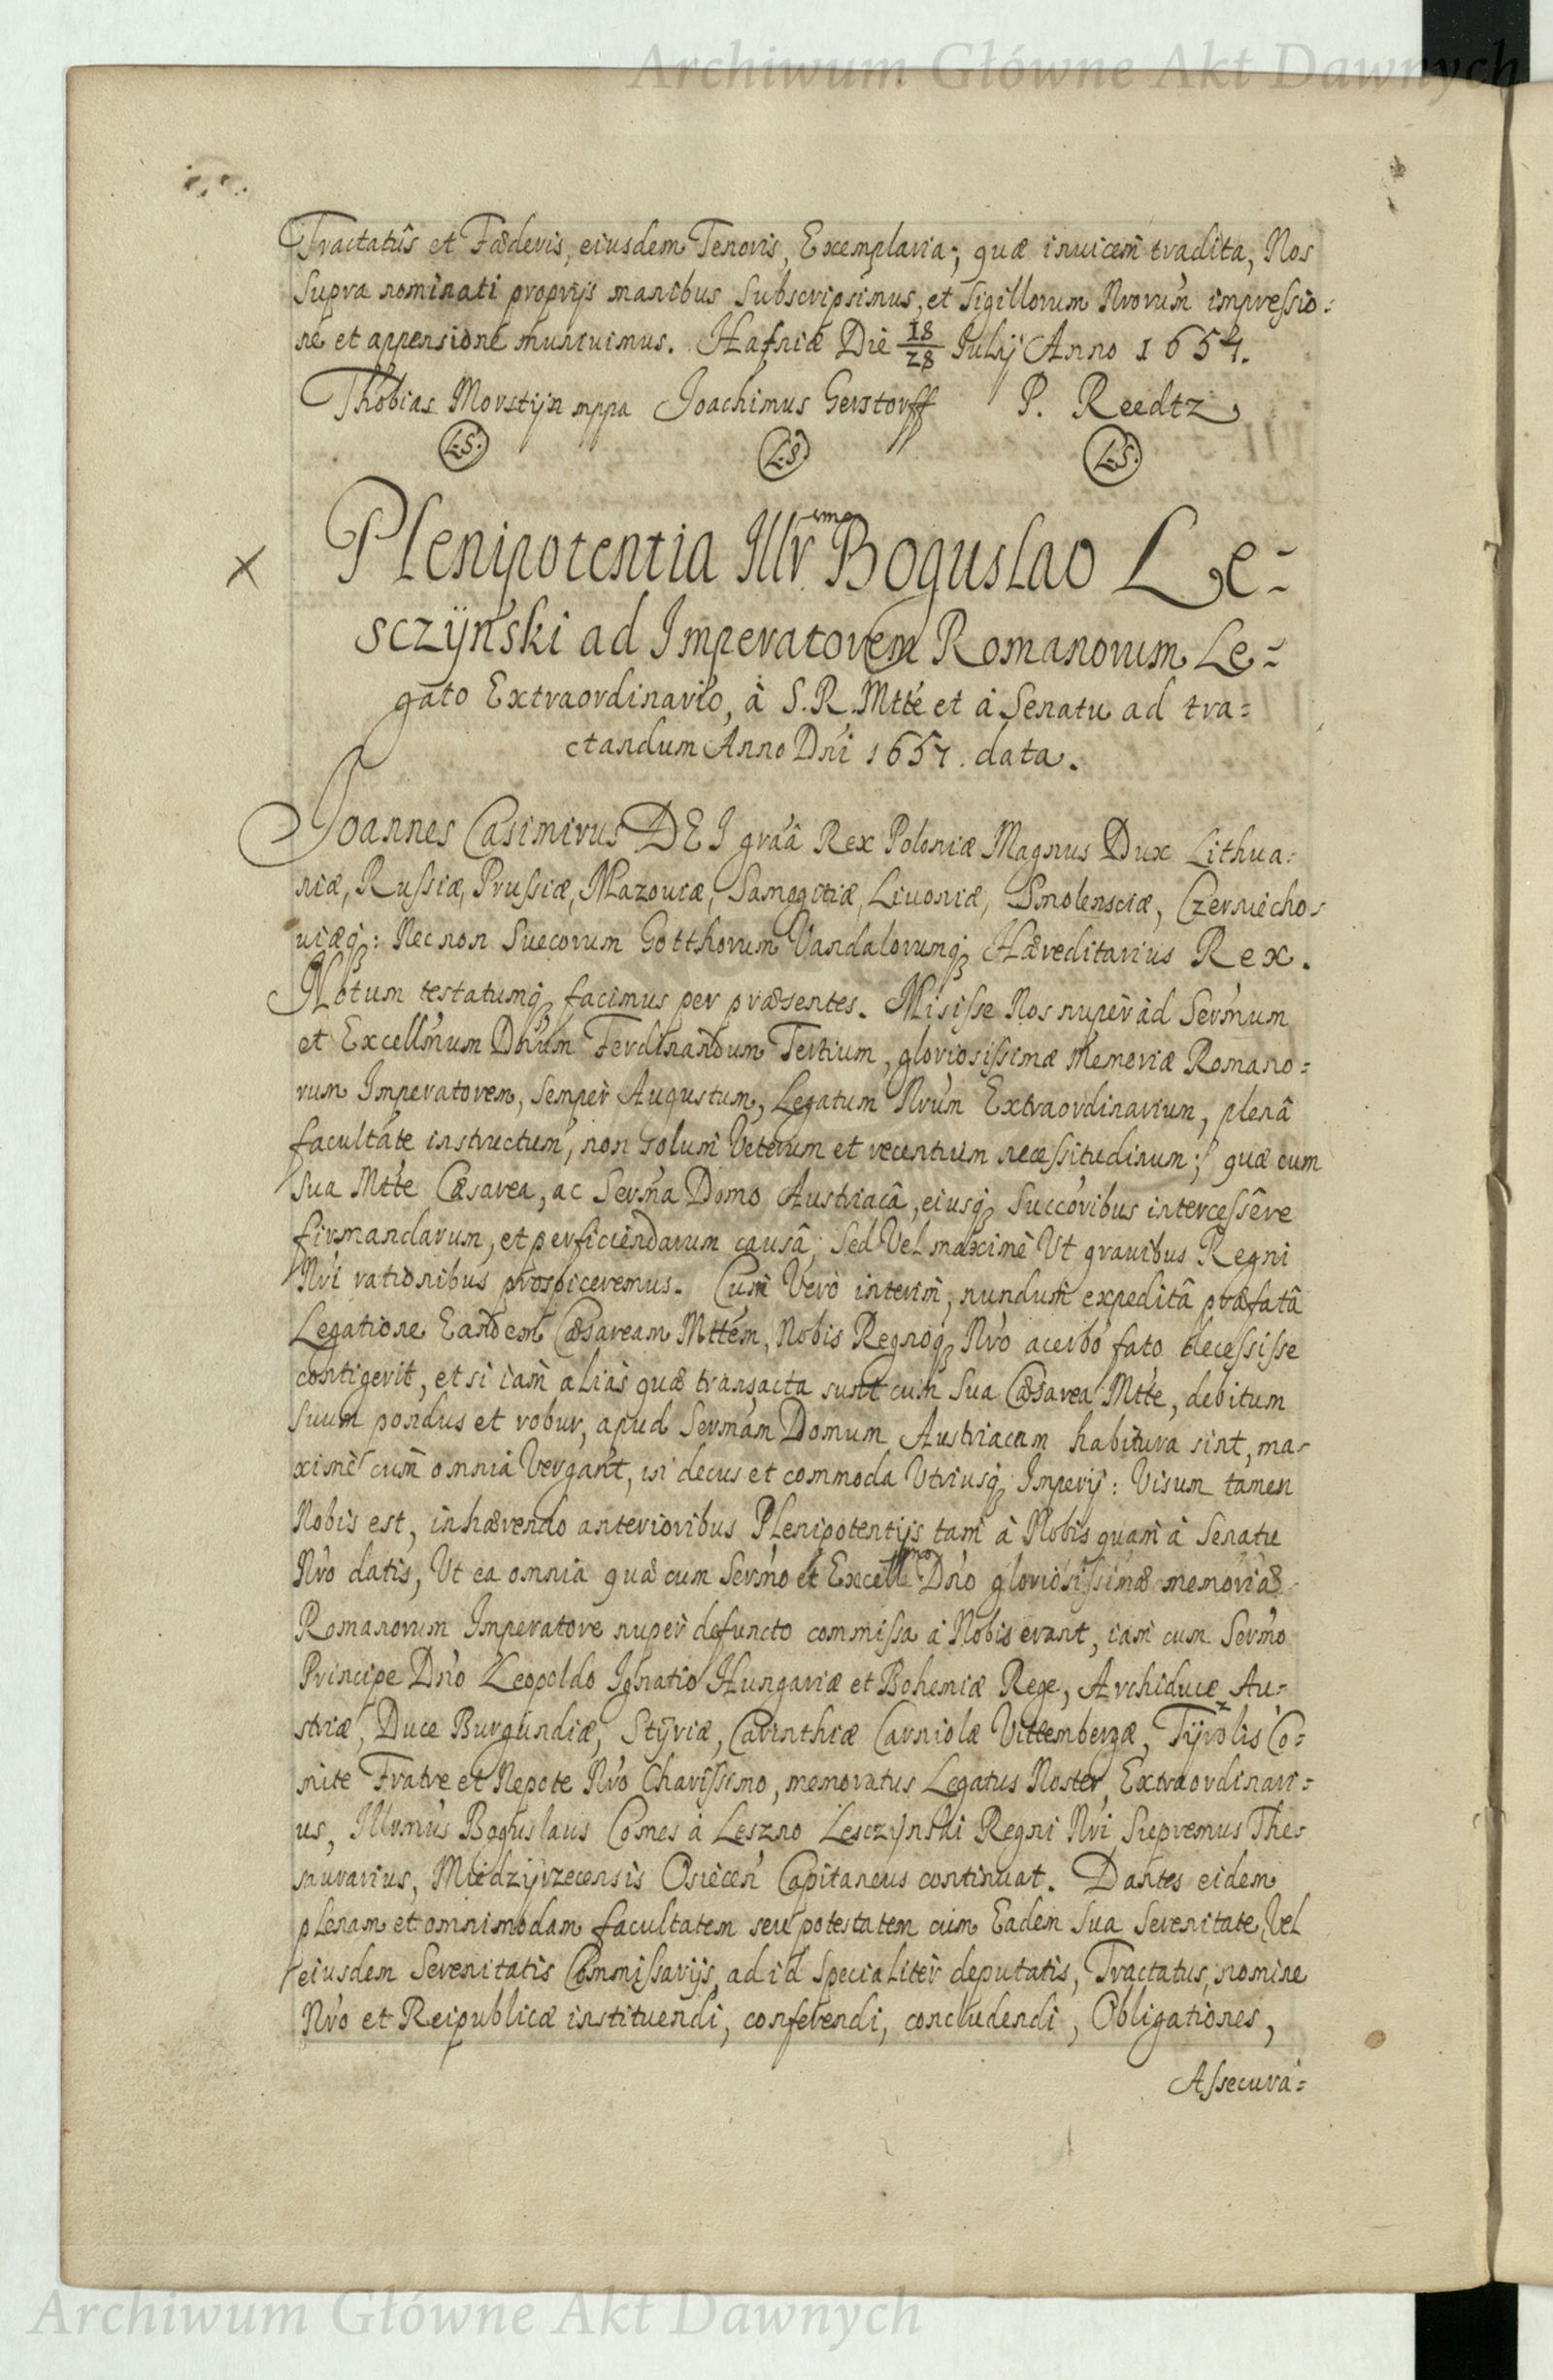 Archiwum Główne Akt Dawnych
Tractatûs et Fœderis, eiusdem Tenoris, Exemplaria; quæ inuicem tradita, Nos
Supra nominati proprijs manibus Subscripsimus, et Sigillorum Nrorum impressio:
ne et appensione muniuimus. Hafniæ Die 18/28 Julij Anno 1657.
Thobias Morstijn mppa Joachimus Gerstorff P. Reedtz
L.S. L.S. L.S.
Plenipotentia Illr̃imo Boguslao Le=
sczÿnski ad Imperatorem Romanorum Le=
gato Extraordinario, à S.R.Mtte et à Senatu ad tra=
ctandum Anno Dni 1657. data.
Joannes Casimirus DEI graâ Rex Poloniæ Magnus Dux Lithua:
niæ, Russiæ, Prussiæ, Mazouiæ, Samogitiæ, Liuoniæ, Smolensciæ, Czerniecho-
uiæq;: Nec non Suecorum Gotthorum Vandalorumq; Hæreditarius Rex.
Notum testatumq; facimus per præsentes. Misisse Nos nuper ad Sermum
et Excellmum Dnum Ferdinandum Tertium, gloriosissimæ memoriæ Romano=
rum Imperatorem, Semper Augustum, Legatum Nrum Extraordinarium, plenâ
facultate instructum, non Solum Veterum et recentium necessitudinum; quæ cum
Sua Mtte Cæsarea, ac Serma Domo Austriacâ, eiusq; Succoribus intercessêre
firmandarum, et perficiendarum causâ; Sed Vel maximè Ut grauibus Regni
Nri rationibus prospiceremus. Cum Verò interim, nundum expeditâ præfatâ
Legatione Eandem Cæsaream Mttem, Nobis Regnoq; Nro acerbo fato decessisse
contigerit, et si iam aliàs quæ transacta sunt cum Sua Cæsarea Mtte, debitum
Suum pondus et robur, apud Sermam Domum Austriacam habitura sint, ma-
ximè cum omnia Vergant, in decus et commoda Utriusq; Imperij: Visum tamen
Nobis est, inhærendo anterioribus Plenipotentijs tam à Nobis quam à Senatu
Nro datis, Ut ea omnia quæ cum Sermo et Excellmo Dno gloriosissimæ memoriæ
Romanorum Imperatore nuper defuncto commissa à Nobis erant, iam cum Sermo
Principe Dno Leopoldo Ignatio Hungariæ et Bohemiæ Rege, Archiduce Au-
striæ, Duce Burgundiæ, Stÿriæ, Carinthiæ Carniolæ Vittembergæ, Tÿrolis Co=
mite Fratre et Nepote Nro Charissimo, memoratus Legatus Noster, Extraordinari=
us, Illrmus Boguslaus Comes à Leszno Lesczÿnski Regni Nri Supremus The-
saurarius, Miedzÿrzecensis Osiecen Capitaneus continuat. Dantes eidem
plenam et omnimodam facultatem seu potestatem cum Eadem Sua Serenitate, Vel
eiusdem Serenitatis Commissarijs, ad id Specialiter deputatis, Tractatus, nomine
Nro et Reipublicæ instituendi, conferendi, concludendi, Obligationes,
Assecura=
Archiwum Główne Akt Dawnych